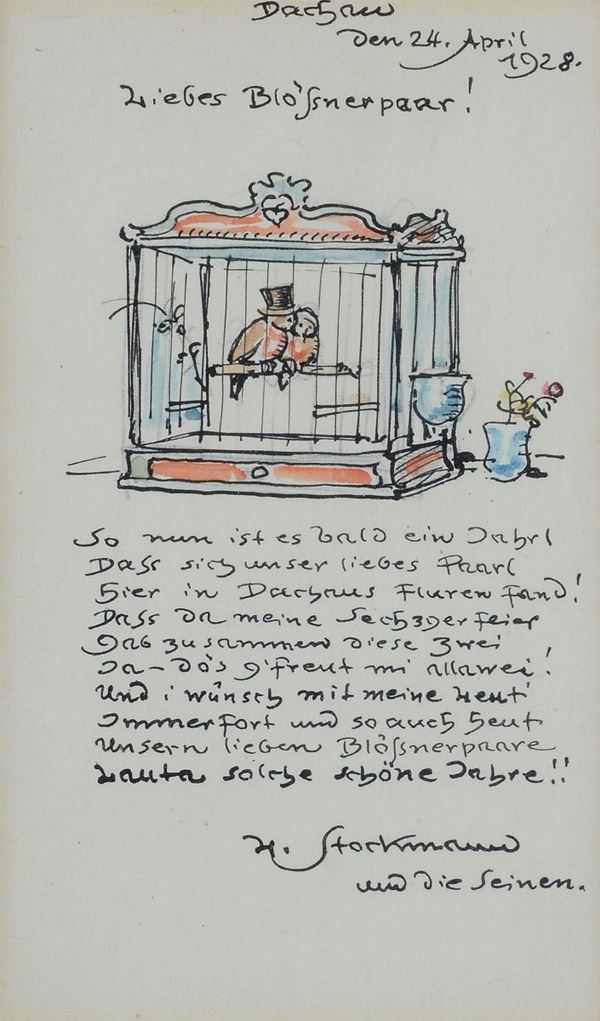 Dachau
den 24. April
1928.
Liebes Blößnerpaar!
So nun ist es bald ein Jahrl
Dass sich unser liebes Paarl
Hier in Dachaus Fluren fand!
Dass da meine Sechzgerfeier
Gab zusammen diese Zwei
Ja - dös g'freut mi allawei!
Und i wünsch mit meine Leut'
Immerfort und so auch heut
Unsern lieben Blößnerpaare
Lauta solche schöne Jahre!!
H. Stockmann
und die Seinen.